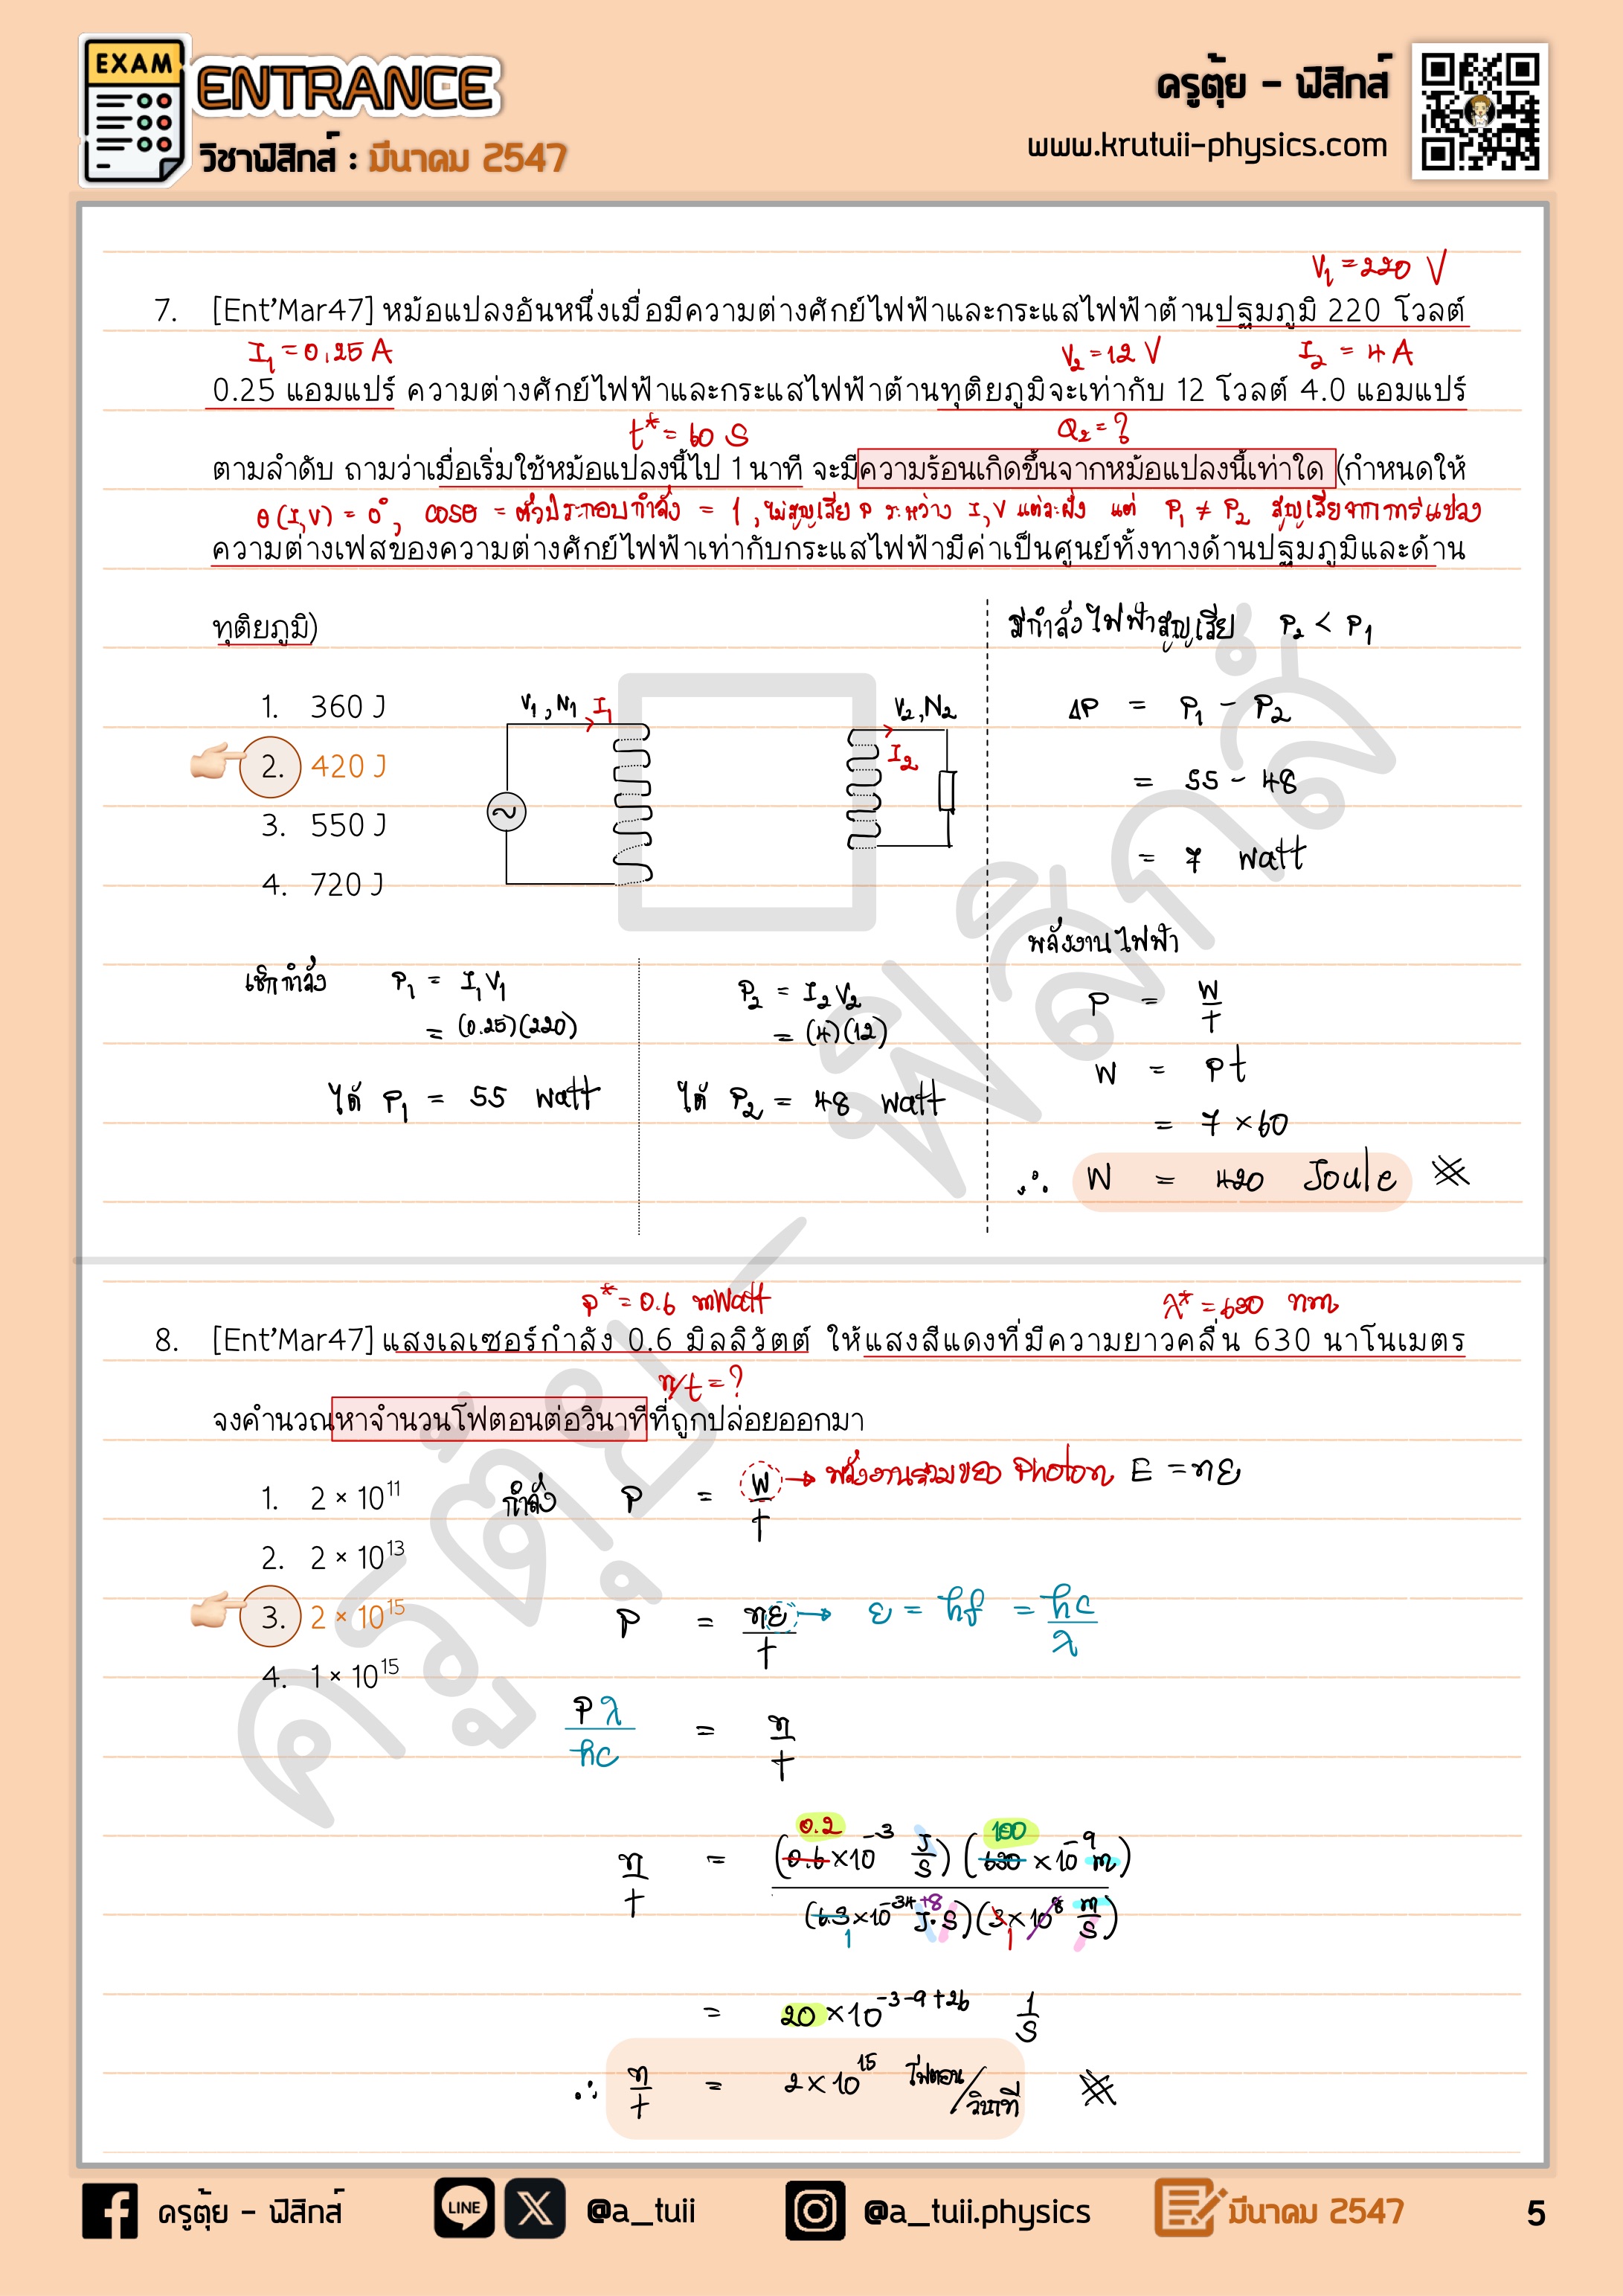 EXAM
ENTRANCE
วิชาฟิสิกส์ : มีนาคม 2547
ครูตุ้ย - ฟิสิกส์
www.krutuii-physics.com
V₁ = 220 V
7. [Ent'Mar47] หม้อแปลงอันหนึ่งเมื่อมีความต่างศักย์ไฟฟ้าและกระแสไฟฟ้าด้านปฐมภูมิ 220 โวลต์
I₁ = 0.25 A V₂ = 12 V I₂ = 4 A
0.25 แอมแปร์ ความต่างศักย์ไฟฟ้าและกระแสไฟฟ้าด้านทุติยภูมิจะเท่ากับ 12 โวลต์ 4.0 แอมแปร์
t* = 60 s Q₂ = ?
ตามลำดับ ถามว่าเมื่อเริ่มใช้หม้อแปลงนี้ไป 1 นาที จะมีความร้อนเกิดขึ้นจากหม้อแปลงนี้เท่าใด (กำหนดให้
θ (I,V) = 0°, cosθ = ตัวประกอบกำลัง = 1 , ไม่สูญเสีย P ระหว่าง I, V แต่ละฝั่ง แต่ P₁ ≠ P₂ สูญเสียจากการแปลง
ความต่างเฟสของความต่างศักย์ไฟฟ้าเท่ากับกระแสไฟฟ้ามีค่าเป็นศูนย์ทั้งทางด้านปฐมภูมิและด้าน
ทุติยภูมิ)
1. 360 J
2. 420 J
3. 550 J
4. 720 J
V₁ , N₁ I₁
V₂, N₂
I₂
เช็กกำลัง P₁ = I₁V₁
= (0.25)(220)
ได้ P₁ = 55 watt
P₂ = I₂V₂
= (4)(12)
ได้ P₂ = 48 watt
มีกำลังไฟฟ้าสูญเสีย P₂ < P₁
ΔP = P₁ - P₂
= 55 - 48
= 7 watt
พลังงานไฟฟ้า
P = W/t
W = Pt
= 7 × 60
∴ W = 420 Joule
P* = 0.6 mWatt λ* = 630 nm
8. [Ent'Mar47] แสงเลเซอร์กำลัง 0.6 มิลลิวัตต์ ให้แสงสีแดงที่มีความยาวคลื่น 630 นาโนเมตร
n/t = ?
จงคำนวณหาจำนวนโฟตอนต่อวินาทีที่ถูกปล่อยออกมา
1. 2 × 10¹¹
2. 2 × 10¹³
3. 2 × 10¹⁵
4. 1 × 10¹⁵
กำลัง P = W/t → พลังงานรวมของ Photon E = nε
P = nε/t → ε = hf = hc/λ
Pλ/hc = n/t
0.2 100
n/t = (0.6×10⁻³ J/s) (630 ×10⁻⁹ m)
(6.3×10⁻³⁴⁺⁸ J·s)(3×10⁸ m/s)
1 1
= 20 ×10⁻³⁻⁹⁺²⁶ 1/s
∴ n/t = 2 × 10¹⁵ โฟตอน/วินาที
ครูตุ้ย - ฟิสิกส์
ครูตุ้ย - ฟิสิกส์
LINE
X
@a_tuii
@a_tuii.physics
มีนาคม 2547
5